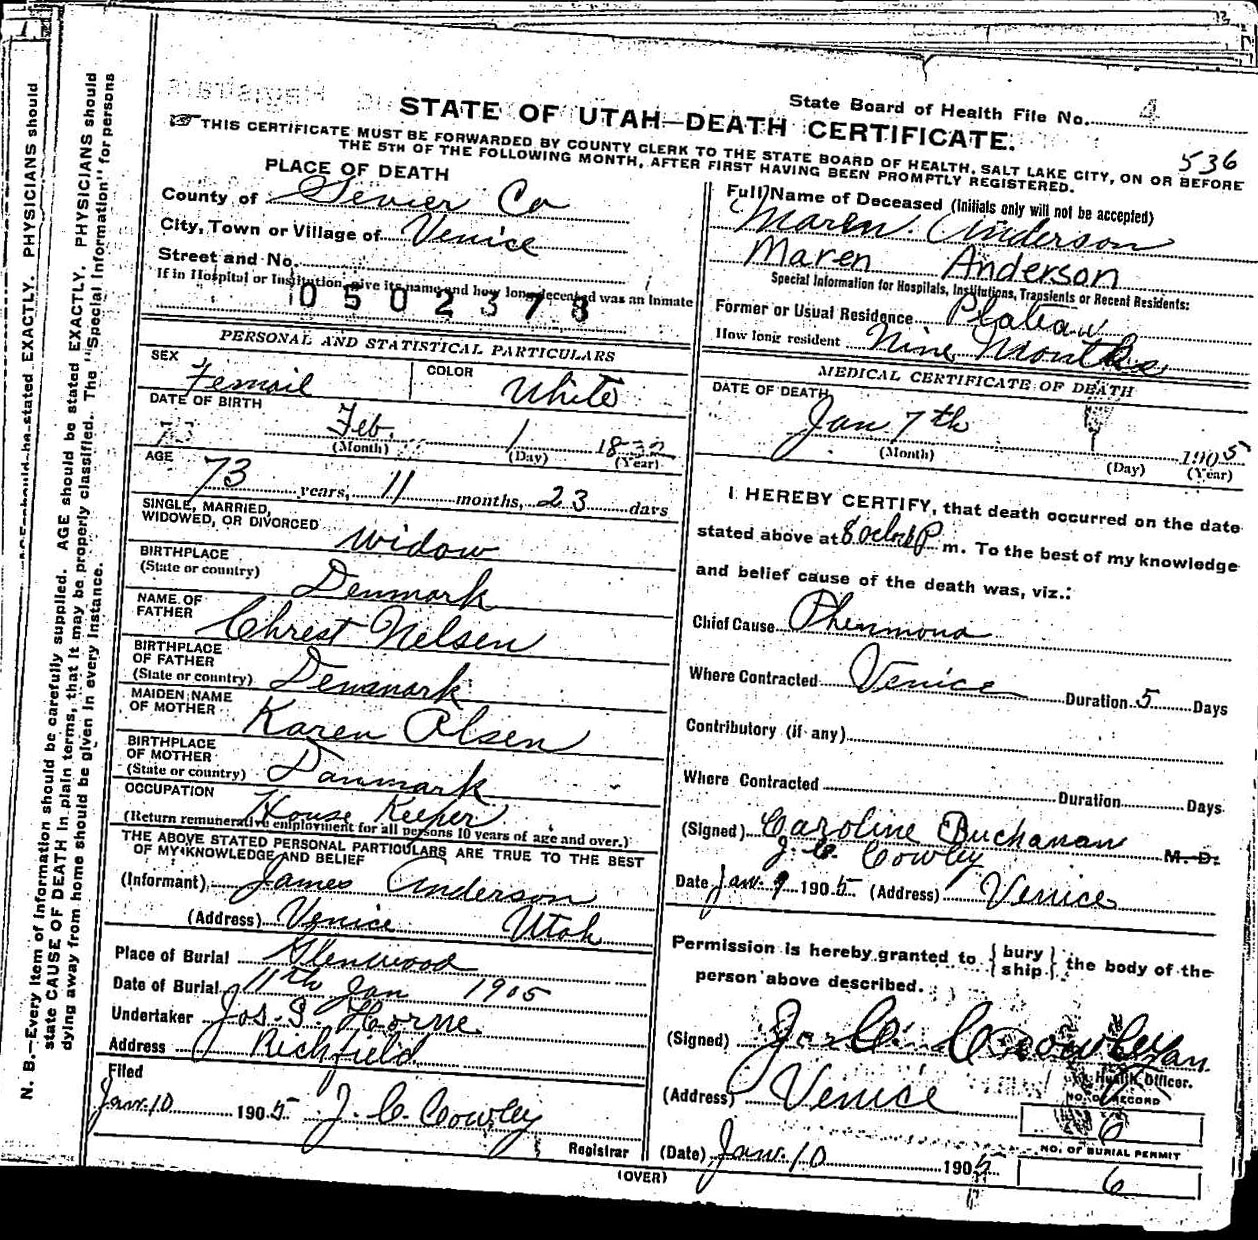 N. B.—Every item of information should be carefully supplied. AGE should be stated EXACTLY. PHYSICIANS should
state CAUSE OF DEATH in plain terms, that it may be properly classified. The "Special Information" for persons
dying away from home should be given in every instance.
State Board of Health File No. 4
STATE OF UTAH—DEATH CERTIFICATE.
536
THIS CERTIFICATE MUST BE FORWARDED BY COUNTY CLERK TO THE STATE BOARD OF HEALTH, SALT LAKE CITY, ON OR BEFORE
THE 5TH OF THE FOLLOWING MONTH, AFTER FIRST HAVING BEEN PROMPTLY REGISTERED.
PLACE OF DEATH
County of Sevier Co
City, Town or Village of Venice
Street and No.
If in Hospital or Institution give its name and how long deceased was an Inmate
0502378
PERSONAL AND STATISTICAL PARTICULARS
SEX Femail
COLOR White
DATE OF BIRTH
73 Feb. 1 1832
(Month) (Day) (Year)
AGE 73 years, 11 months, 23 days
SINGLE, MARRIED,
WIDOWED, OR DIVORCED Widow
BIRTHPLACE
(State or country) Denmark
NAME OF
FATHER Chrest Nelsen
BIRTHPLACE
OF FATHER
(State or country) Denmark
MAIDEN NAME
OF MOTHER Karen Olsen
BIRTHPLACE
OF MOTHER
(State or country) Danmark
OCCUPATION House Keeper
(Return remunerative employment for all persons 10 years of age and over.)
THE ABOVE STATED PERSONAL PARTICULARS ARE TRUE TO THE BEST
OF MY KNOWLEDGE AND BELIEF
(Informant) James Anderson
(Address) Venice Utah
Place of Burial Glenwood
Date of Burial 11th Jan 1905
Undertaker Jos. S. Horne
Address Richfield
Filed
Jan. 10 1905 J. C. Cowley
Registrar
(OVER)
Full Name of Deceased (Initials only will not be accepted)
Maren Anderson
Maren Anderson
Special Information for Hospitals, Institutions, Transients or Recent Residents:
Former or Usual Residence Plateau
How long resident Nine Months
MEDICAL CERTIFICATE OF DEATH
DATE OF DEATH
Jan 7th 1905
(Month) (Day) (Year)
I HEREBY CERTIFY, that death occurred on the date
stated above at 8 oclock P m. To the best of my knowledge
and belief cause of the death was, viz.:
Chief Cause Phenmona
Where Contracted Venice Duration 5 Days
Contributory (if any)
Where Contracted Duration Days
(Signed) Caroline Buchanan M. D.
J. C. Cowley
Date Jan. 9 1905 (Address) Venice
Permission is hereby granted to { bury ship } the body of the
person above described.
(Signed) Cowley
Health Officer.
(Address) Venice
NO. OF RECORD
6
(Date) Jan. 10 1905
NO. OF BURIAL PERMIT
6